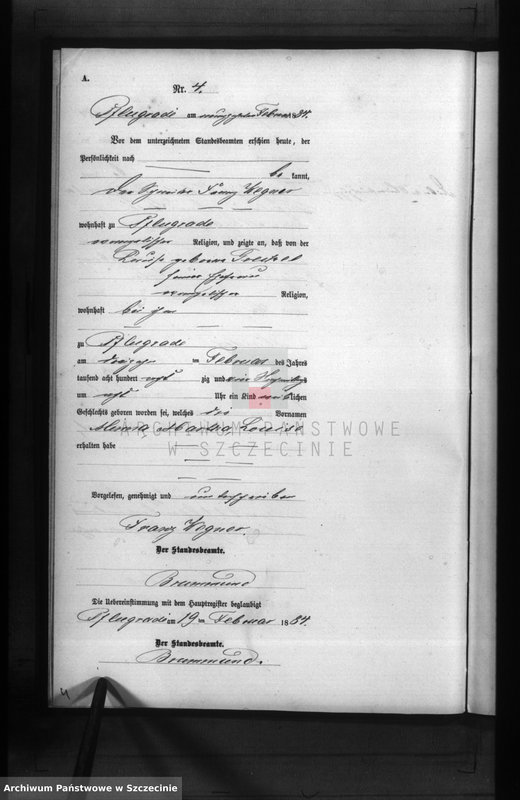 A.
Nr. 4.
Pflugrade am neunzehnten Februar 1884.
Vor dem unterzeichneten Standesbeamten erschien heute, der
Persönlichkeit nach
be kannt,
Franz Wegner
wohnhaft zu Pflugrade
evangelischer Religion, und zeigte an, daß von der
Louise geborne
seiner Ehefrau
evangelischer Religion,
wohnhaft bei ihm
zu Pflugrade
am im Februar des Jahres
tausend acht hundert acht zig und vier
um acht Uhr ein Kind weib lichen
Geschlechts geboren worden sei, welches die Vornamen
Minna Martha Louise
erhalten habe
Vorgelesen, genehmigt und unterschrieben
Franz Wegner.
Der Standesbeamte.
Brummund
Die Uebereinstimmung mit dem Hauptregister beglaubigt
Pflugrade am 19 ten Februar 1884.
Der Standesbeamte.
Brummund.
4
ARCHIWUM PAŃSTWOWE
W SZCZECINIE
Archiwum Państwowe w Szczecinie